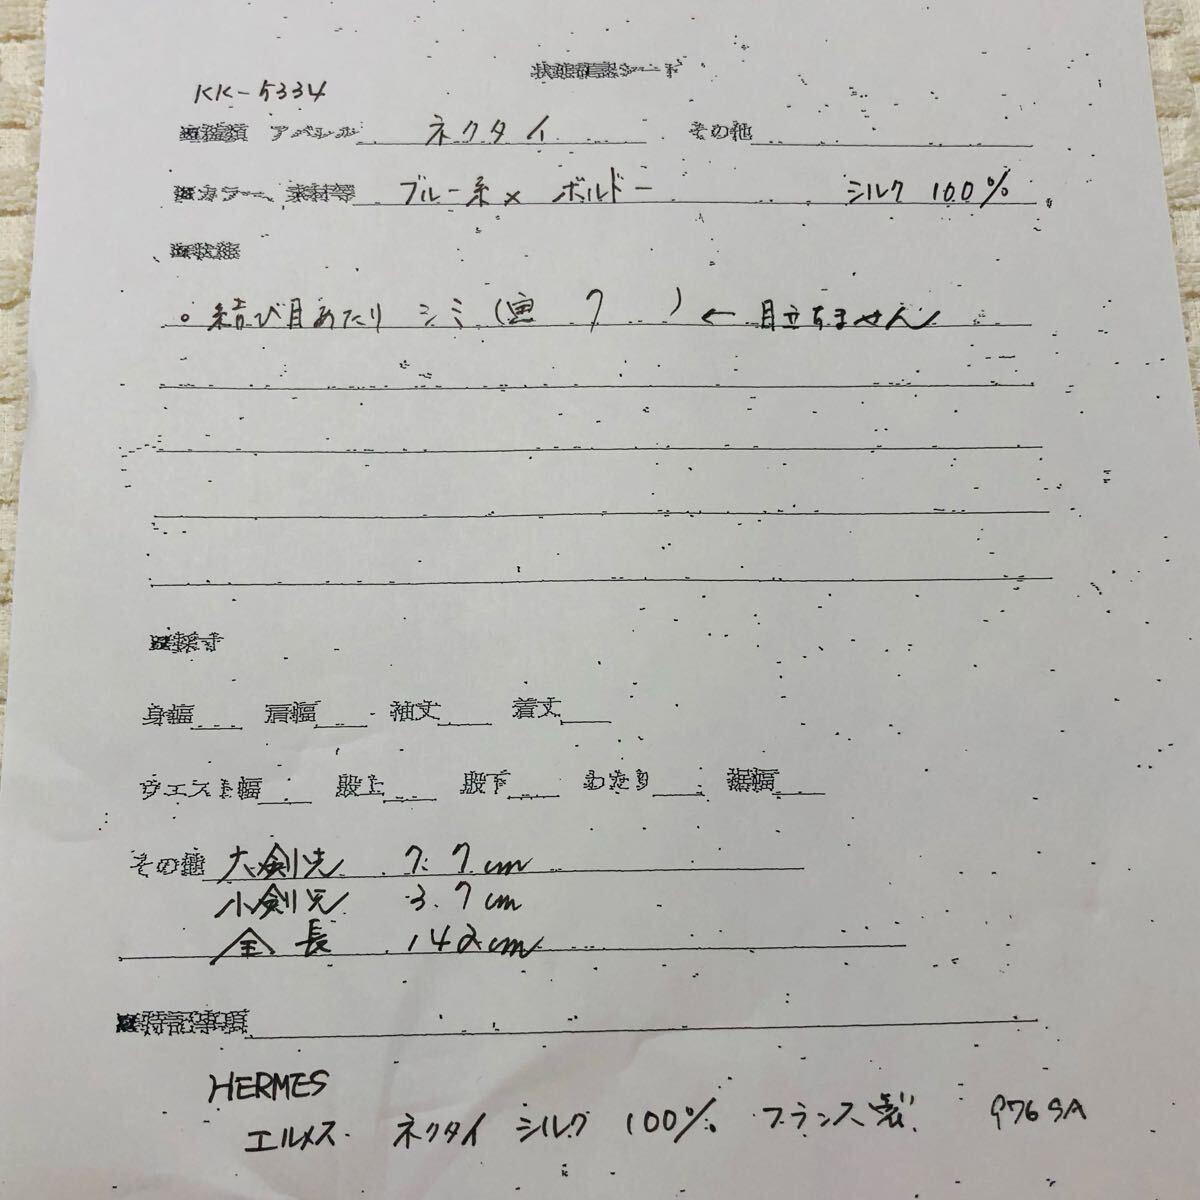 状態確認シート
KK-5334
■種類 アパレル ネクタイ その他
■カラー、素材等 ブルー系× ボルドー シルク 100%
■状態
○ 結び目あたり シミ(写 7 ) ← 目立ちません
■採寸
身幅 肩幅 袖丈 着丈
ウエスト幅 股上 股下 わたり 裾幅
その他 大剣先 7.7cm
小剣先 3.7cm
全長 142cm
■特記事項
HERMES
エルメス ネクタイ シルク 100% フランス製 976SA